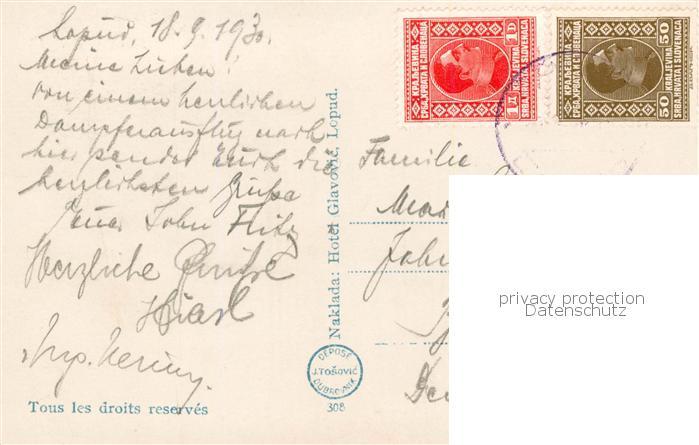 Lopud, 18.9.1930.
Meine Lieben!
Von einem herrlichen
Dampferausflug nach
hier sendet Euch die
herzlichsten Grüße
Euer Sohn Fritz
Herzliche Grüße
Tous les droits reservés
Naklada: Hotel Glavović, Lopud.
DEPOSÉ
J. TOŠOVIĆ
DUBROVNIK
308
КРАЉЕВИНА
СРБА, ХРВАТА И СЛОВЕНАЦА
1 D
KRALJEVINA
SRBA, HRVATA I SLOVENACA
1 Д
КРАЉЕВИНА
СРБА, ХРВАТА И СЛОВЕНАЦА
50
KRALJEVINA
SRBA, HRVATA I SLOVENACA
50
Familie
privacy protection
Datenschutz